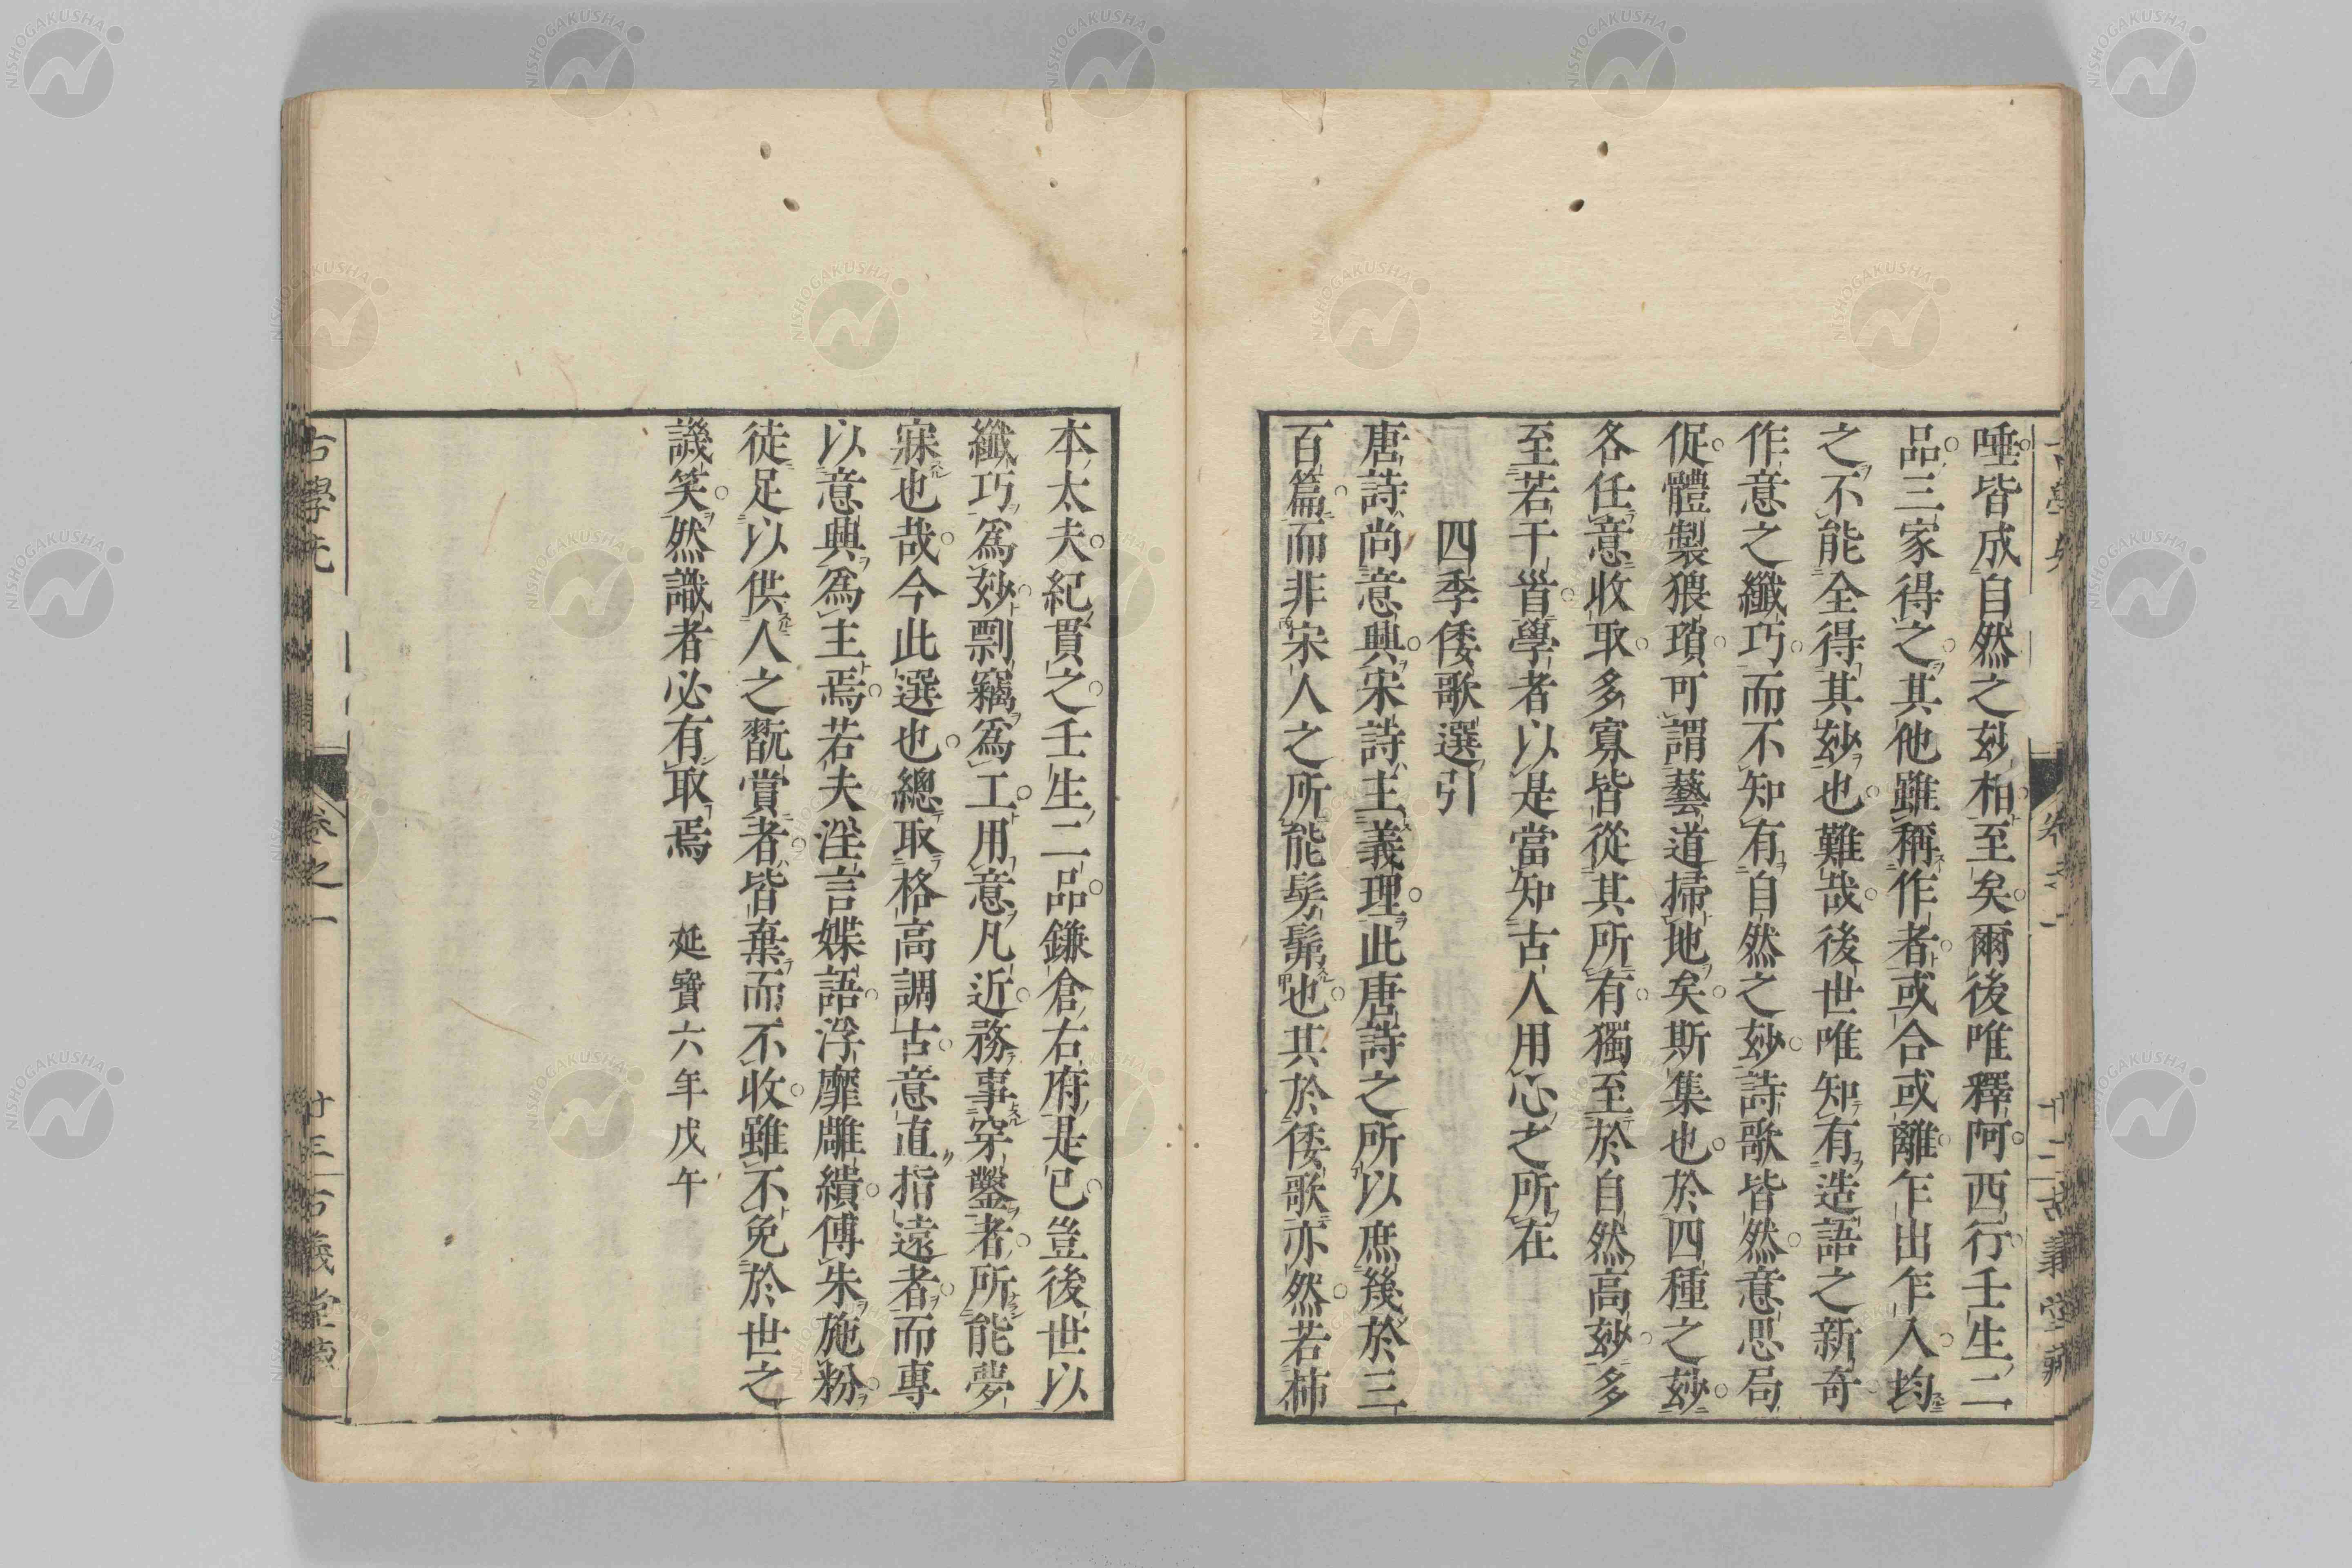 唾皆成自然之玅柏至矣爾後唯釋阿西行壬生二
品三家得之其他雖稱作者或合或離乍出乍入均
之不能全得其玅也難哉後世唯知有造語之新奇
作意之纖巧而不知有自然之玅詩歌皆然意思局
促體製猥瑣可謂藝道掃地矣斯集也於四種之玅
各任意收取多寡皆從其所有獨至於自然高玅多
至若干首學者以是當知古人用心之所在
四季倭歌選引
唐詩尚意興宋詩主義理此唐詩之所以庶幾於三
百篇而非宋人之所能髣髴也其於倭歌亦然若柿
本太夫紀貫之壬生二品鎌倉右府是已豈後世以
纖巧為妙剽竊為工用意凡近務事穿鑿者所能夢
寐也哉今此選也總取格高調古意直指遠者而專
以意興為主焉若夫淫言媟語浮靡雕繢傅朱施粉
徒足以供人之翫賞者皆棄而不收雖不免於世之
譏笑然識者必有取焉 延寶六年戊午
古學先 卷之一 廿三 古義堂藏
NISHOGAKUSHA